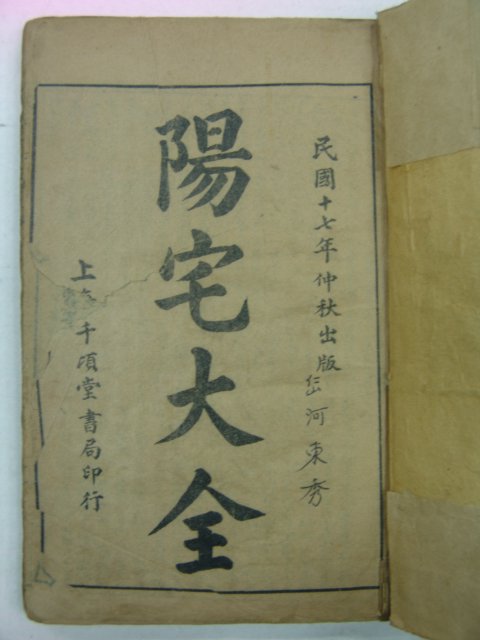 民國十七年仲秋出版
河東秀
陽宅大全
上 千頃堂書局印行